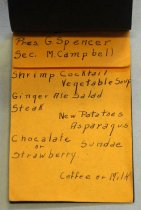 Pres G. Spencer
Sec. M. Campbell
Shrimp Cocktail
Vegetable Soup
Ginger Ale Salad
Steak
New Potatoes
Asparagus
Chocolate
or Sundae
Strawberry
Coffee or Milk